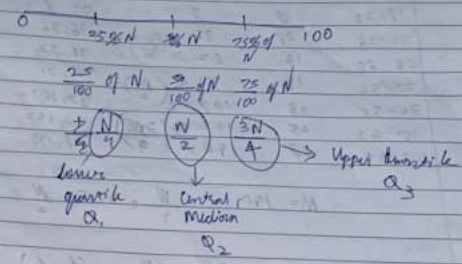 0 25% N 50% N 75% of N 100
25/100 of N, 50/100 of N 75/100 of N
N/4 N/2 3N/4 → Upper Quartile Q3
Lower quartile Q1
Central, Median Q2